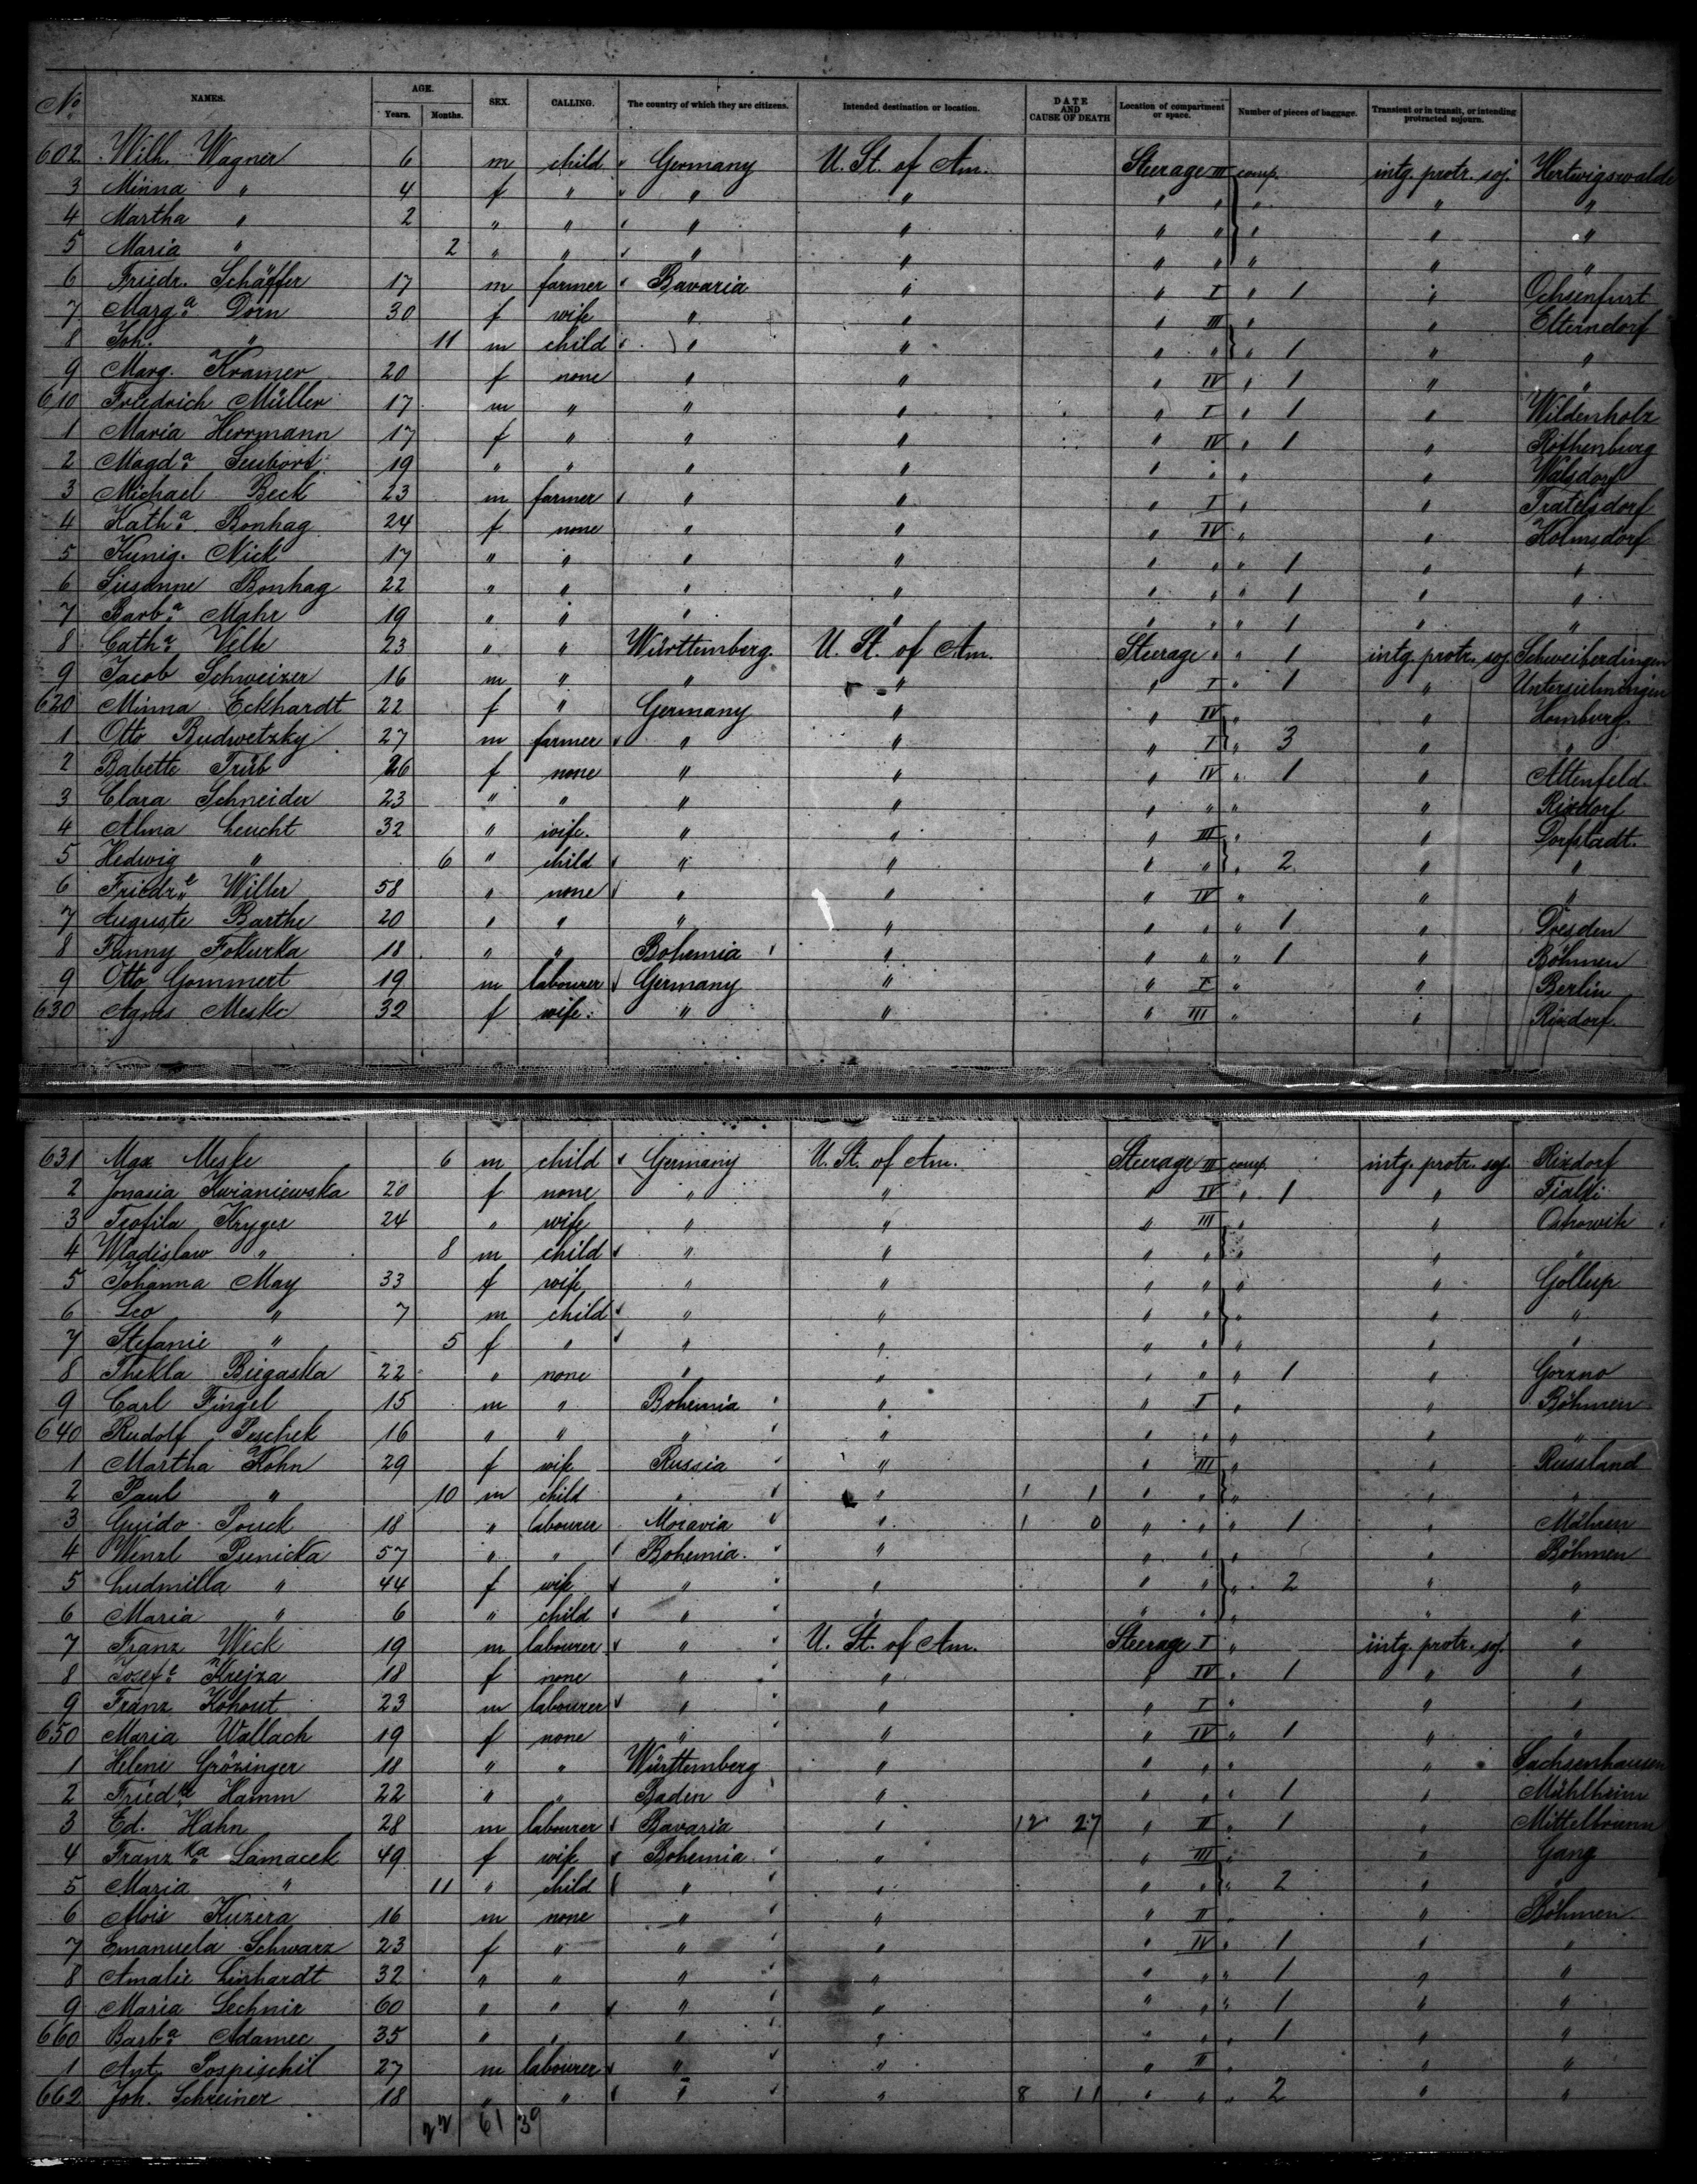 No. NAMES. AGE. Years. Months. SEX. CALLING. The country of which they are citizens. Intended destination or location. DATE AND CAUSE OF DEATH Location of compartment or space. Number of pieces of baggage. Transient or in transit, or intending protracted sojourn.
602 Wilh. Wagner 6 m child Germany U. St. of Am. Steerage III comp. intg. protr. soj. Hertwigswalde
3 Minna " 4 f " " " " " " " "
4 Martha " 2 " " " " " " " " "
5 Maria " 2 " " " " " " " " "
6 Friedr. Schäffer 17 m farmer Bavaria " " I " 1 " Ochsenfurt
7 Marg.a Dorn 30 f wife " " " III " " Elterndorf
8 Joh. " 11 m child " " " " " 1 " "
9 Marg. Kramer 20 f none " " " IV " 1 " "
610 Friedrich Müller 17 m " " " " I " 1 " Wildenholz
1 Maria Herrmann 17 f " " " " IV " 1 " Rothenburg
2 Magd.a 19 " " " " " " " " Walsdorf
3 Michael Beck 23 m farmer " " " I " "
4 Kath.a Bonhag 24 f none " " " IV " " Kolmsdorf
5 Kunig. Nick 17 " " " " " " " 1 " "
6 Susanne Bonhag 22 " " " " " " " 1 " "
7 Barb.a Mahr 19 " " " " " " " 1 " "
8 Cath.a Velte 23 " " Württemberg. U. St. of Am. Steerage " " 1 intg. protr. soj. Schweiberdingen
9 Jacob Schweizer 16 m " " " " I " 1 "
620 Minna Eckhardt 22 f " Germany " " IV " " Homburg
1 Otto Budwetzky 27 m farmer " " " I " 3 " "
2 Babette Trüb 26 f none " " " IV " 1 " Altenfeld
3 Clara Schneider 23 " " " " " " " " Rixdorf
4 Alma Leucht 32 " wife. " " " III " " Dorfstadt.
5 Hedwig " 6 " child " " " " " 2 " "
6 Friedr.e Willer 58 " none " " " IV " " "
7 Auguste Barthe 20 " " " " " " " 1 " Dresden
8 Fanny Fokurka 18 " " Bohemia " " " " 1 " Böhmen
9 Otto Gommert 19 m labourer Germany " " I " " Berlin
630 Agnes Meske 32 f wife. " " " III " " Rixdorf.
631 Max Meske 6 m child Germany U. St. of Am. Steerage III comp. intg. protr. soj. Rixdorf
2 Kwianiewska 20 f none " " " IV " 1 "
3 Teofila Kryger 24 " wife " " " III " "
4 Wladislaw " 8 m child " " " " " " "
5 Johanna May 33 f wife " " " " " " Gollup
6 Leo " 7 m child " " " " " " "
7 Stefanie " 5 f " " " " " " " "
8 Thekla Biegaska 22 " none " " " " " 1 " Gorzno
9 Carl Fingel 15 m " Bohemia " " I " " Böhmen
640 Rudolf Peschek 16 " " " " " " " " "
1 Martha Kohn 29 f wife Russia " " III " " Russland
2 Paul " 10 m child " " 1 1 " " " " "
3 Guido Pouck 18 " labourer Moravia " 1 0 " " " 1 " Mähren
4 Wenzl Punicka 57 " " Bohemia. " " " " " Böhmen
5 Ludmilla " 44 f wife " " " " " 2 " "
6 Maria " 6 " child " " " " " " "
7 Franz Weck 19 m labourer " U. St. of Am. Steerage I " intg. protr. soj. "
8 Josef.e Krejza 18 f none " " " IV " 1 " "
9 Franz Kohout 23 m labourer " " " I " " "
650 Maria Wallach 19 f none " " " IV " 1 " "
1 Helene Grözinger 18 " " Württemberg " " " " " Sachsenhausen
2 Fried.ke Hamm 22 " " Baden " " " " 1 " Mühlheim
3 Ed. Hahn 28 m labourer Bavaria " 12 27 " II " 1 " Mittelbrunn
4 Franz.ka Lamacek 49 f wife Bohemia " " III " " Gang
5 Maria " 11 " child " " " " " 2 " "
6 Alois Kuzera 16 m none " " " II " " Böhmen
7 Emanuela Schwarz 23 f " " " " IV " 1 " "
8 Amalie Linhardt 32 " " " " " " " 1 " "
9 Maria Lechnir 60 " " " " " " " 1 " "
660 Barb.a Adamec 35 " " " " " " " 1 " "
1 Ant. Pospischil 27 m labourer " " " II " " "
662 Joh. Schreiner 18 " " " " 8 11 " " " 2 " "
22 61 39